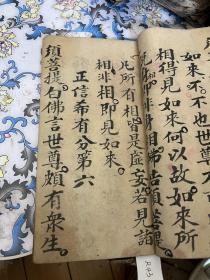 如來不。不也
相得見如來何以故如來所
即非身相佛告須菩提
凡所有相皆是虛妄若見諸
相非相即見如來。
正信希有分第六
須菩提白佛言世尊頗有衆生。